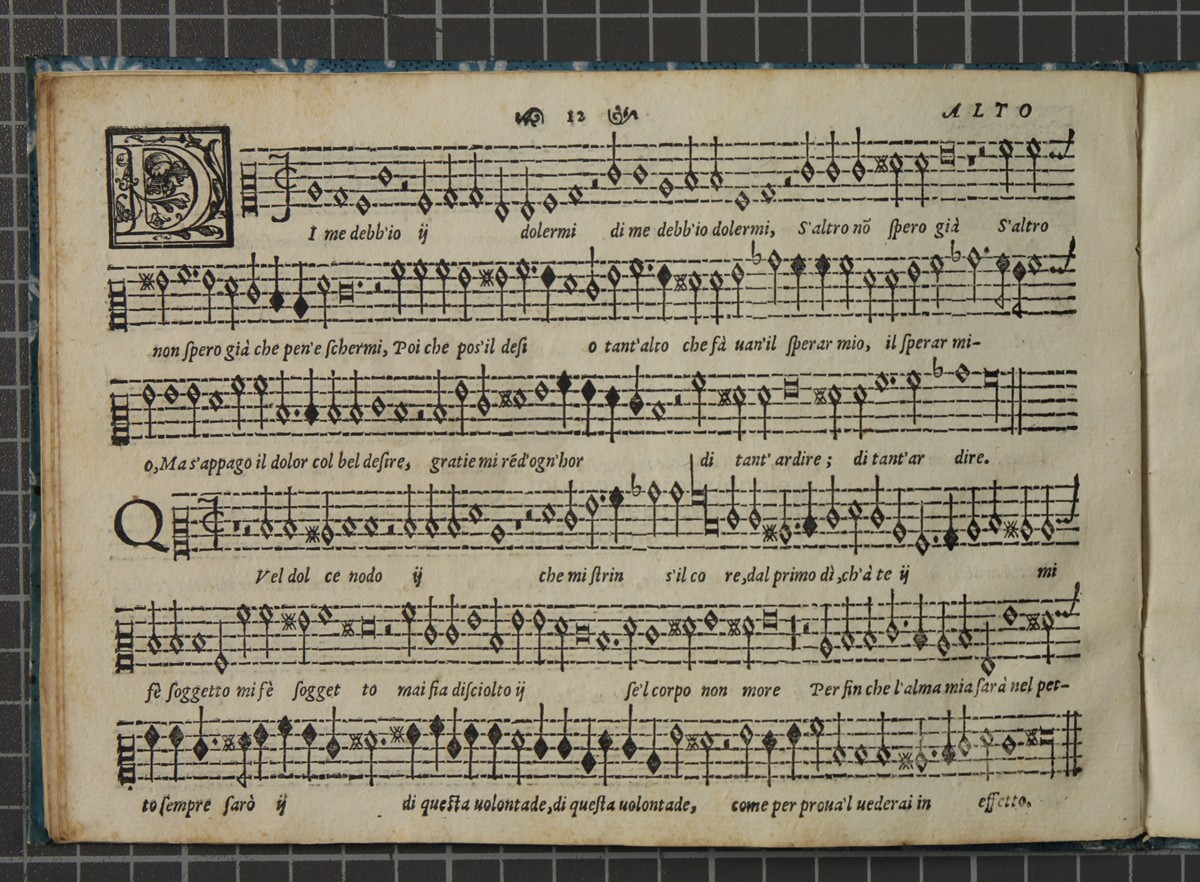 12 ALTO
DI me debb'io ij dolermi di me debb'io dolermi, S'altro nõ ſpero già S'altro
non ſpero già che pen'e ſchermi, Poi che pos'il deſi o tant'alto che fà uan'il ſperar mio, il ſperar mi-
o, Ma s'appago il dolor col bel deſire, gratie mi rẽd'ogn'hor di tant'ardire; di tant'ar dire.
QVel dol ce nodo ij che mi ſtrin s'il co re, dal primo dì, ch'à te ij mi
fè ſoggetto mi fè ſogget to mai ſia diſciolto ij ſe'l corpo non more Per fin che l'alma mia ſarà nel pet-
to ſempre ſarò ij di queſta uolontade, di queſta uolontade, come per proua'l uederai in effetto.